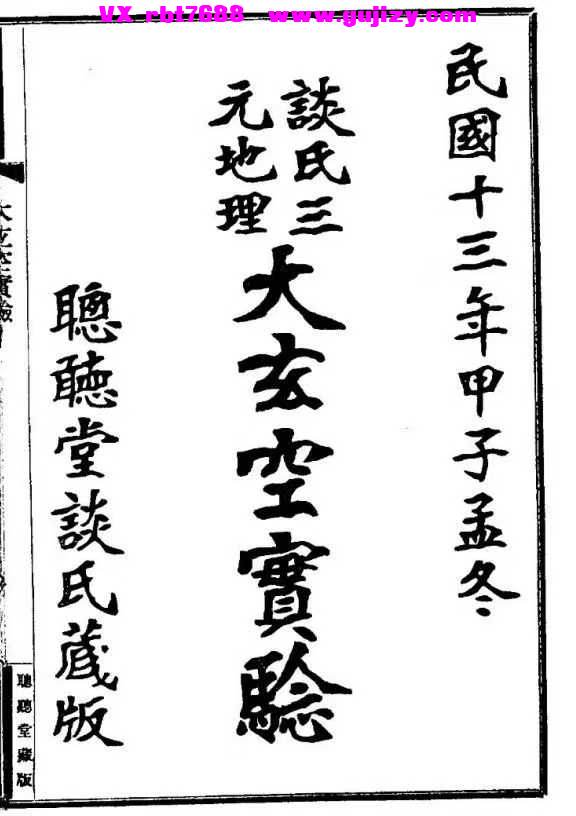 VX rbt7688 www.gujizy.com
民國十三年甲子孟冬
談氏三
元地理
大玄空實驗
聰聽堂談氏藏版
大玄空實驗
聰聽堂藏版